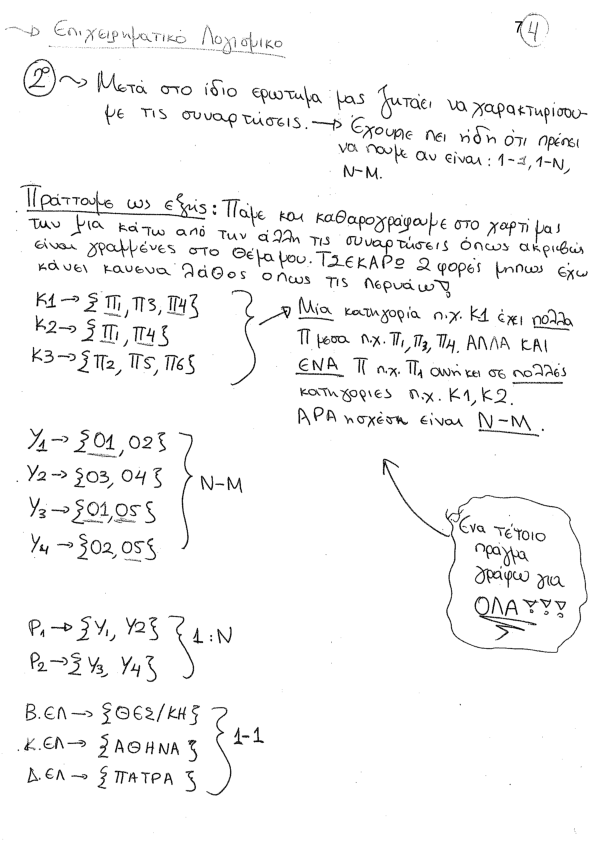 ~> Επιχειρηματικό Λογισμικό
7 4
2º ~> Μετά στο ίδιο ερώτημα μας ζητάει να χαρακτηρίσου-
με τις συναρτήσεις. —> Έχουμε πει ήδη ότι πρέπει
να πουμε αν είναι: 1-1, 1-N,
N-M.
Πράττουμε ως εξής: Πάμε και καθαρογράφουμε στο χαρτί μας
την μια κάτω από την άλλη τις συναρτήσεις όπως ακριβώς
είναι γραμμένες στο θέμα μου. ΤΣΕΚΑΡΩ 2 φορές μήπως έχω
κάνει κανενα λάθος οπως τις περνάω!
K1 → {Π1, Π3, Π4}
K2 → {Π1, Π4}
K3 → {Π2, Π5, Π6}
→ Μία κατηγορία π.χ. K1 έχει πολλα
Π μεσα π.χ. Π1, Π3, Π4. ΑΛΛΑ ΚΑΙ
ΕΝΑ Π π.χ. Π1 ανήκει σε πολλές
κατηγοριες π.χ. K1, K2.
ΑΡΑ η σχέση είναι N-M.
Y1 → {O1, O2}
Y2 → {O3, O4}
Y3 → {O1, O5}
Y4 → {O2, O5}
N-M
Ένα τέτοιο
πράγμα
γράφω για
ΟΛΑ!!!
P1 → {Y1, Y2}
P2 → {Y3, Y4}
1:N
Β.ΕΛ → {ΘΕΣ/ΚΗ}
Κ.ΕΛ → {ΑΘΗΝΑ}
Δ.ΕΛ → {ΠΑΤΡΑ}
1-1